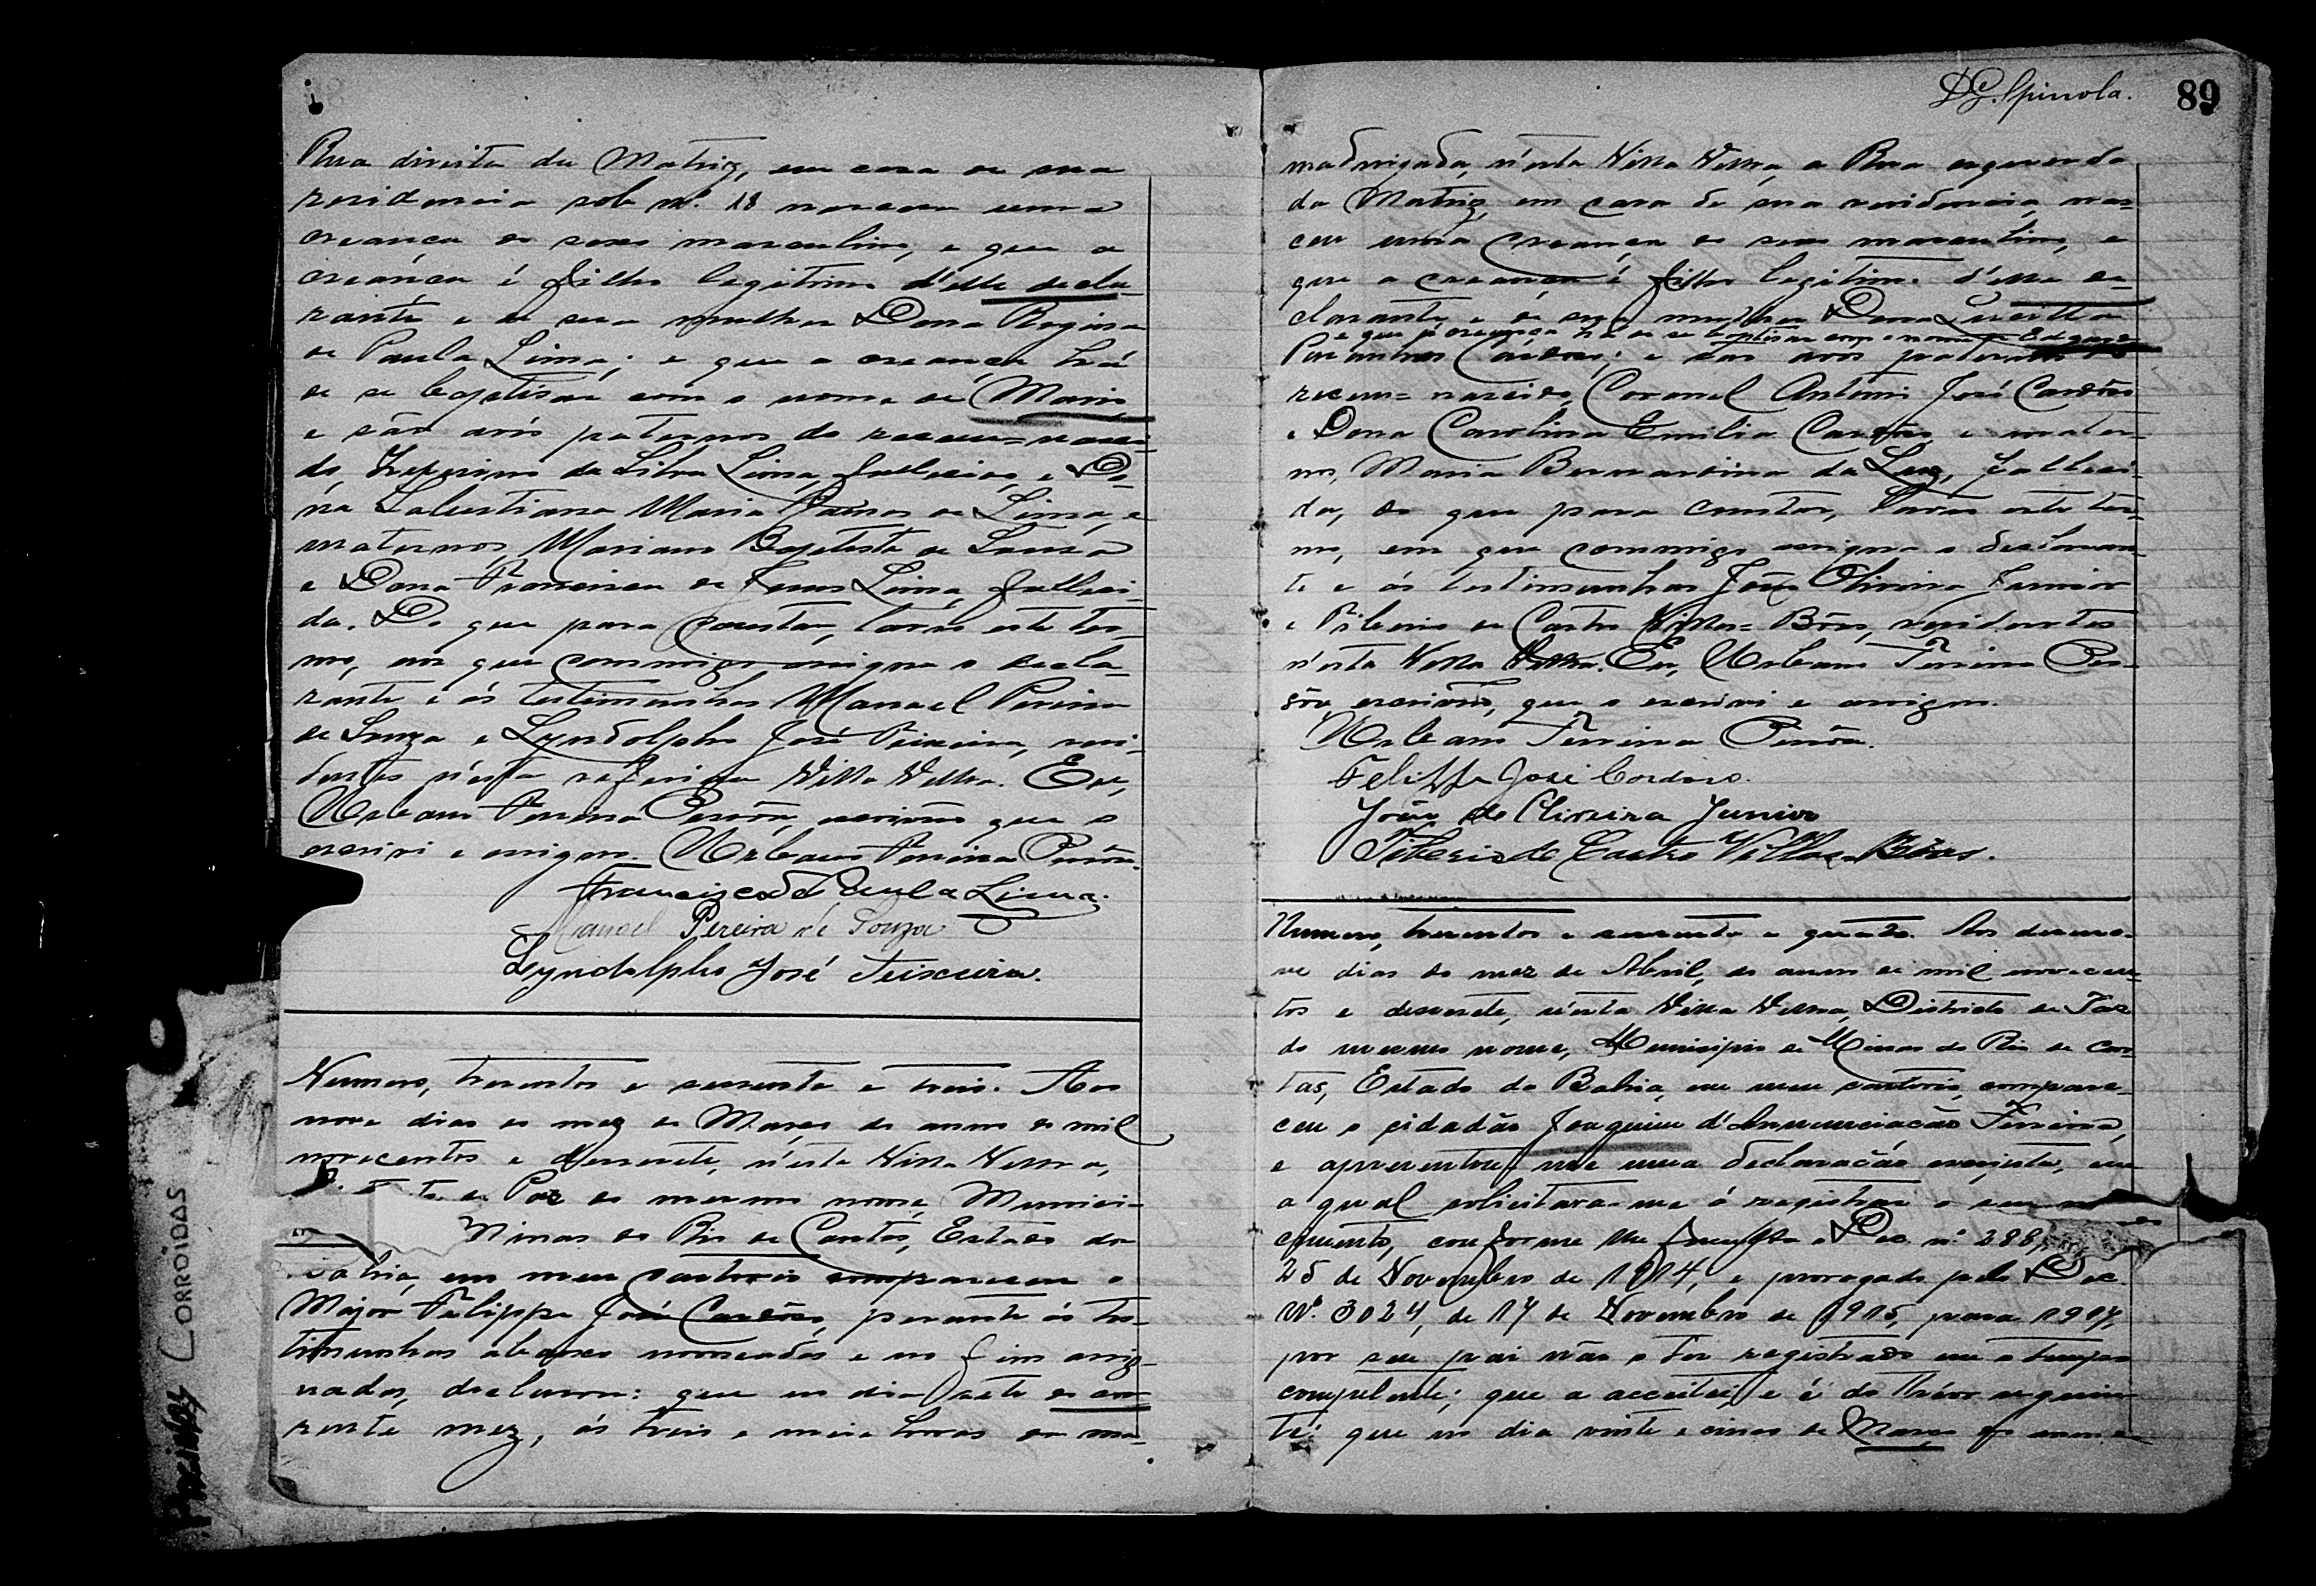 Rua direita da Matriz, em casa de sua
residencia sob nº. 18 nasceu uma
creança do sexo masculino, e que a
creança é filho legitimo d'elle decla-
rante e de sua mulher Dona Regina
de Paula Lima; e que a creança há
de se baptisar com o nome de Mario
e são avós paternos do recem-nasci-
do, Zeferino da Silva Lima, fallecido, e Do-
na Salustiana Maria de Lima, e
maternos, Mariano Baptista de Souza
e Dona Francisca de Jesus Lima, falleci-
da. Do que para constar, lavro este ter-
mo, em que commigo assigna o decla-
rante e ás testimunhas Manoel Pereira
de Souza e Lyndolpho José Teixeira, resi-
dentes n'esta referida Villa Velha. Eu,
Urbano Ferreira Pessôa, escrivão que o
escrivi e assigno. Urbano Ferreira Pessôa.
Francisco de Paula Lima.
Manoel Pereira de Souza
Lyndolpho José Teixeira.
Numero, trezentos e sessenta e treis. Aos
nove dias do mez de Março do anno de mil
novecentos e desesete, n'esta Villa Velha,
de Paz do mesmo nome, Munici-
Minas do Rio de Contas, Estado da
Bahia, em meu cartorio compareceu o
Major Felippe José Cardôso, perante ás tes-
timunhas abaixo nomeadas e no fim assig-
nadas, declarou: que no dia sete do cor-
rente mez, ás treis e meia horas da ma-
DG. Spinola.
89
madrugada, n'esta Villa Velha, a Rua esquerda
da Matriz, em casa de sua residencia, nas-
ceu uma creança do sexo masculino, e
que a creança é filho legitimo d'elle de-
clarante e de sua mulher Dona
e que a creança há de se baptisar com o nome de Edgard
Cardoso; e são avos paternos do
recem-nascido, Coronel Antonio José Cardôso
e Dona Carolina Emilia Cardôso, e mater-
nos, Maria Bernardina da Luz, falleci-
da, do que para constar, lavro este ter-
mo, em que commigo assigna o declaran-
te e ás testimunhas João Oliveira Junior
e Tiberio de Castro Villas-Bôas, residentes
n'esta Villa Velha. Eu, Urbano Ferreira Pes-
sôa escrivão, que o escrivi e assigno.
Urbano Ferreira Pessôa.
Felippe José Cardoso.
João de Oliveira Junior
Tiberio de Castro Villas-Bôas.
Numero, trezentos e sessenta e quatro. Aos deseno-
ve dias do mez de Abril, do anno de mil novecen-
tos e desesete, n'esta Villa Velha, Districto de Paz
do mesmo nome, Municipio de Minas do Rio de Con-
tas, Estado da Bahia, em meu cartorio, compare-
ceu o cidadão Joaquim d'Annunciacão Ferreira,
e apresentou-me uma declaração escripta, em
a qual solicitara-me á registrar o seu nas-
cimento, conforme me o Dec. nº 288
25 de Novembro de 1914, e prorogado pelo Dec
Nº. 3024, de 17 de Novembro de 1915, para 1917,
por seu pai não o ter registrado em o tempo
competente; que a acceitei, e é do theor seguin-
te: que no dia vinte e cinco de Março do anno
CORROÍDAS